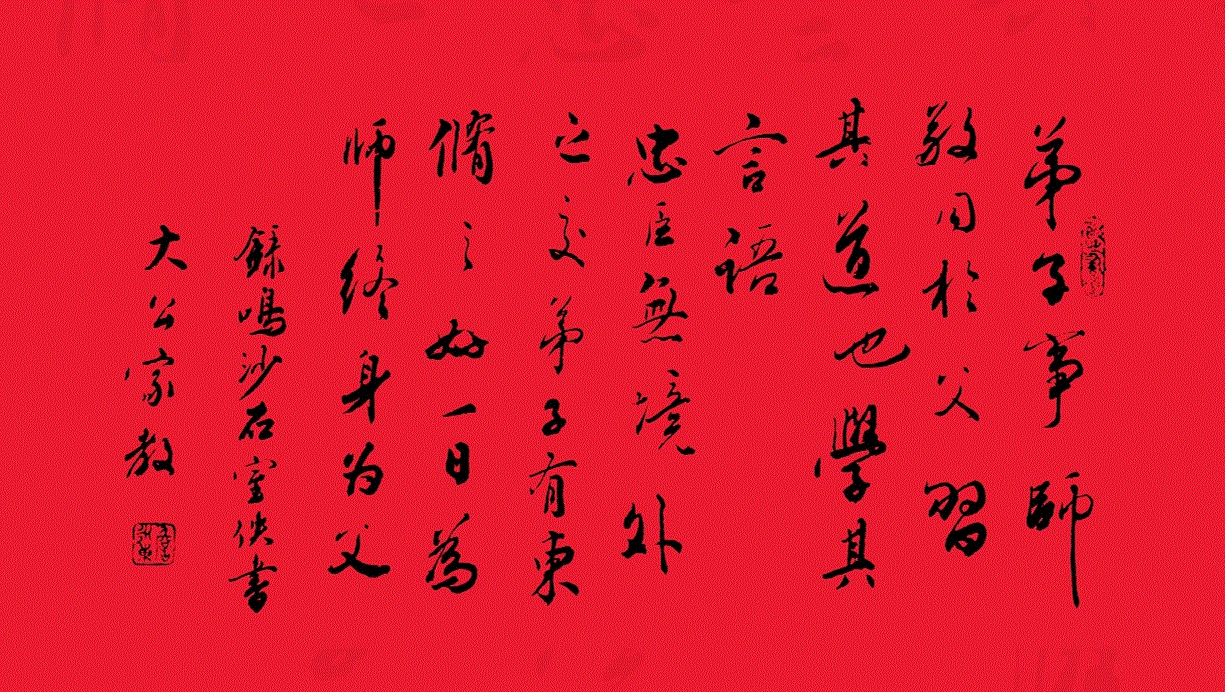 弟子事師
敬同於父習
其道也學其
言語
忠臣無境外
之交弟子有東
脩之好一日為
师终身为父
録鳴沙石室佚書
大公家教